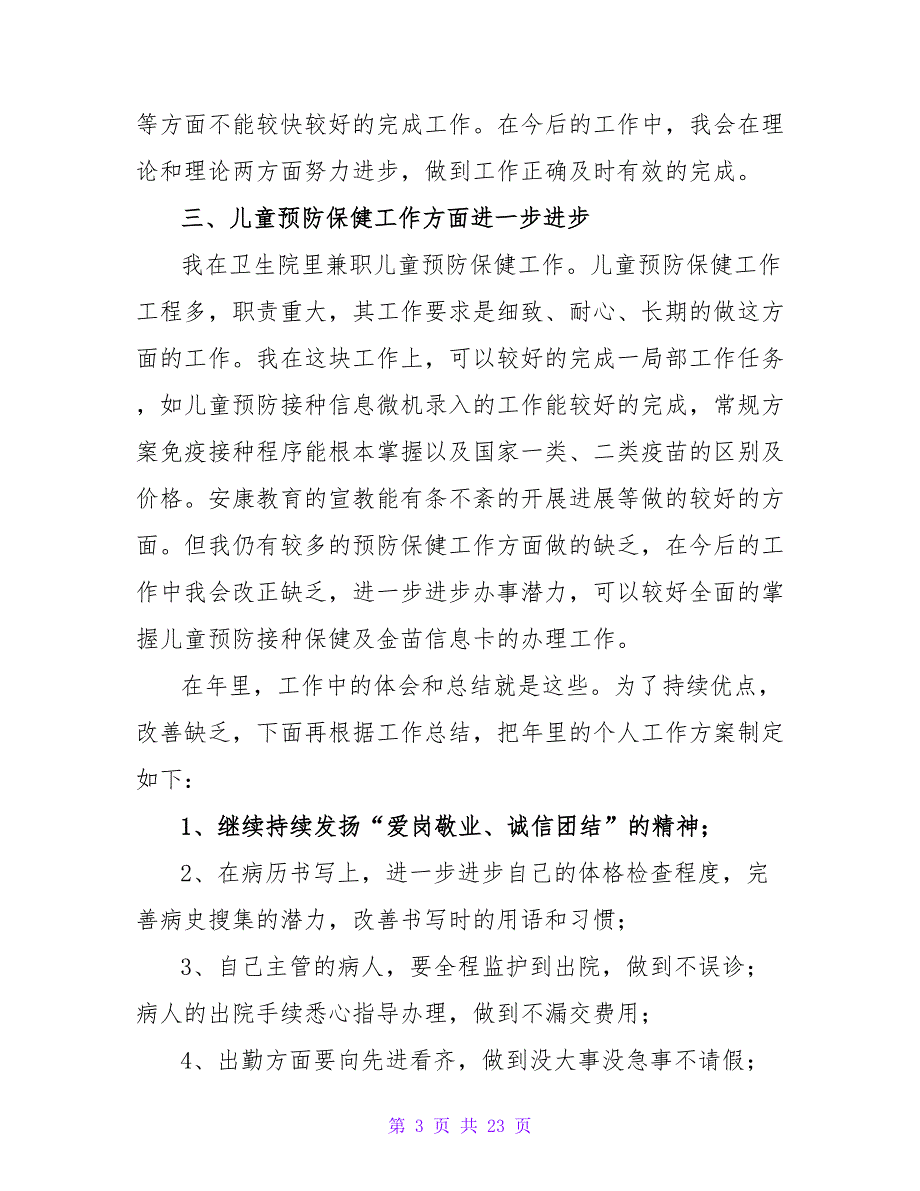 等方面不能较快较好的完成工作。在今后的工作中，我会在理
论和理论两方面努力进步，做到工作正确及时有效的完成。
三、儿童预防保健工作方面进一步进步
我在卫生院里兼职儿童预防保健工作。儿童预防保健工作
工程多，职责重大，其工作要求是细致、耐心、长期的做这方
面的工作。我在这块工作上，可以较好的完成一局部工作任务
，如儿童预防接种信息微机录入的工作能较好的完成，常规方
案免疫接种程序能根本掌握以及国家一类、二类疫苗的区别及
价格。安康教育的宣教能有条不紊的开展进展等做的较好的方
面。但我仍有较多的预防保健工作方面做的缺乏，在今后的工
作中我会改正缺乏，进一步进步办事潜力，可以较好全面的掌
握儿童预防接种保健及金苗信息卡的办理工作。
在年里，工作中的体会和总结就是这些。为了持续优点，
改善缺乏，下面再根据工作总结，把年里的个人工作方案制定
如下：
1、继续持续发扬“爱岗敬业、诚信团结”的精神；
2、在病历书写上，进一步进步自己的体格检查程度，完
善病史搜集的潜力，改善书写时的用语和习惯；
3、自己主管的病人，要全程监护到出院，做到不误诊；
病人的出院手续悉心指导办理，做到不漏交费用；
4、出勤方面要向先进看齐，做到没大事没急事不请假；
第 3 页 共 23 页